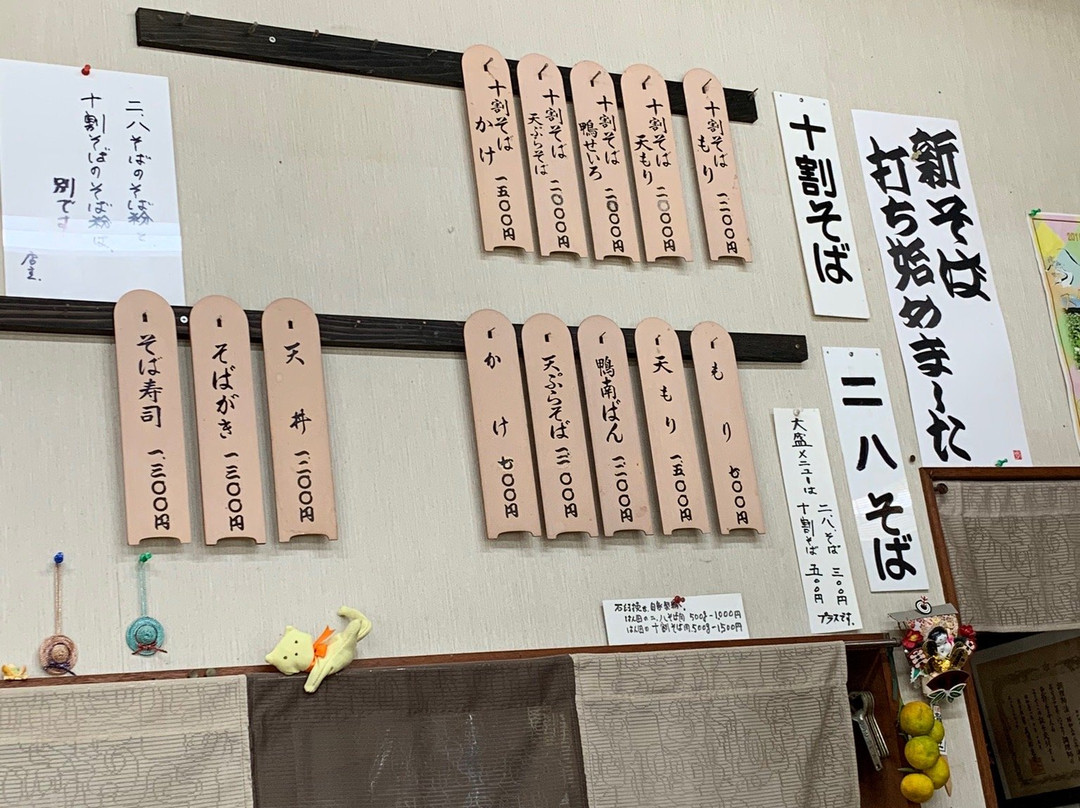 新そば
打ち始めました
十割そば
十割そば もり 一二〇〇円
十割そば 天もり 二〇〇〇円
十割そば 鴨せいろ 二〇〇〇円
十割そば 天ぷらそば 二〇〇〇円
十割そば かけ 一五〇〇円
二、八そばのそば粉と
十割そばのそば粉は、
別です
店主
二八そば
大盛メニューは
二、八、そば 三〇〇円
十割そば 五〇〇円
プラスです。
もり 七〇〇円
天もり 一、五〇〇円
鴨南ばん 一、二〇〇円
天ぷらそば 一、二〇〇円
かけ 七〇〇円
天丼 一、二〇〇円
そばがき 一、三〇〇円
そば寿司 一、三〇〇円
石臼挽き自家製粉、
はん田の二、八そば肉 500g-1000円
はん田の十割そば肉 500g-1500円